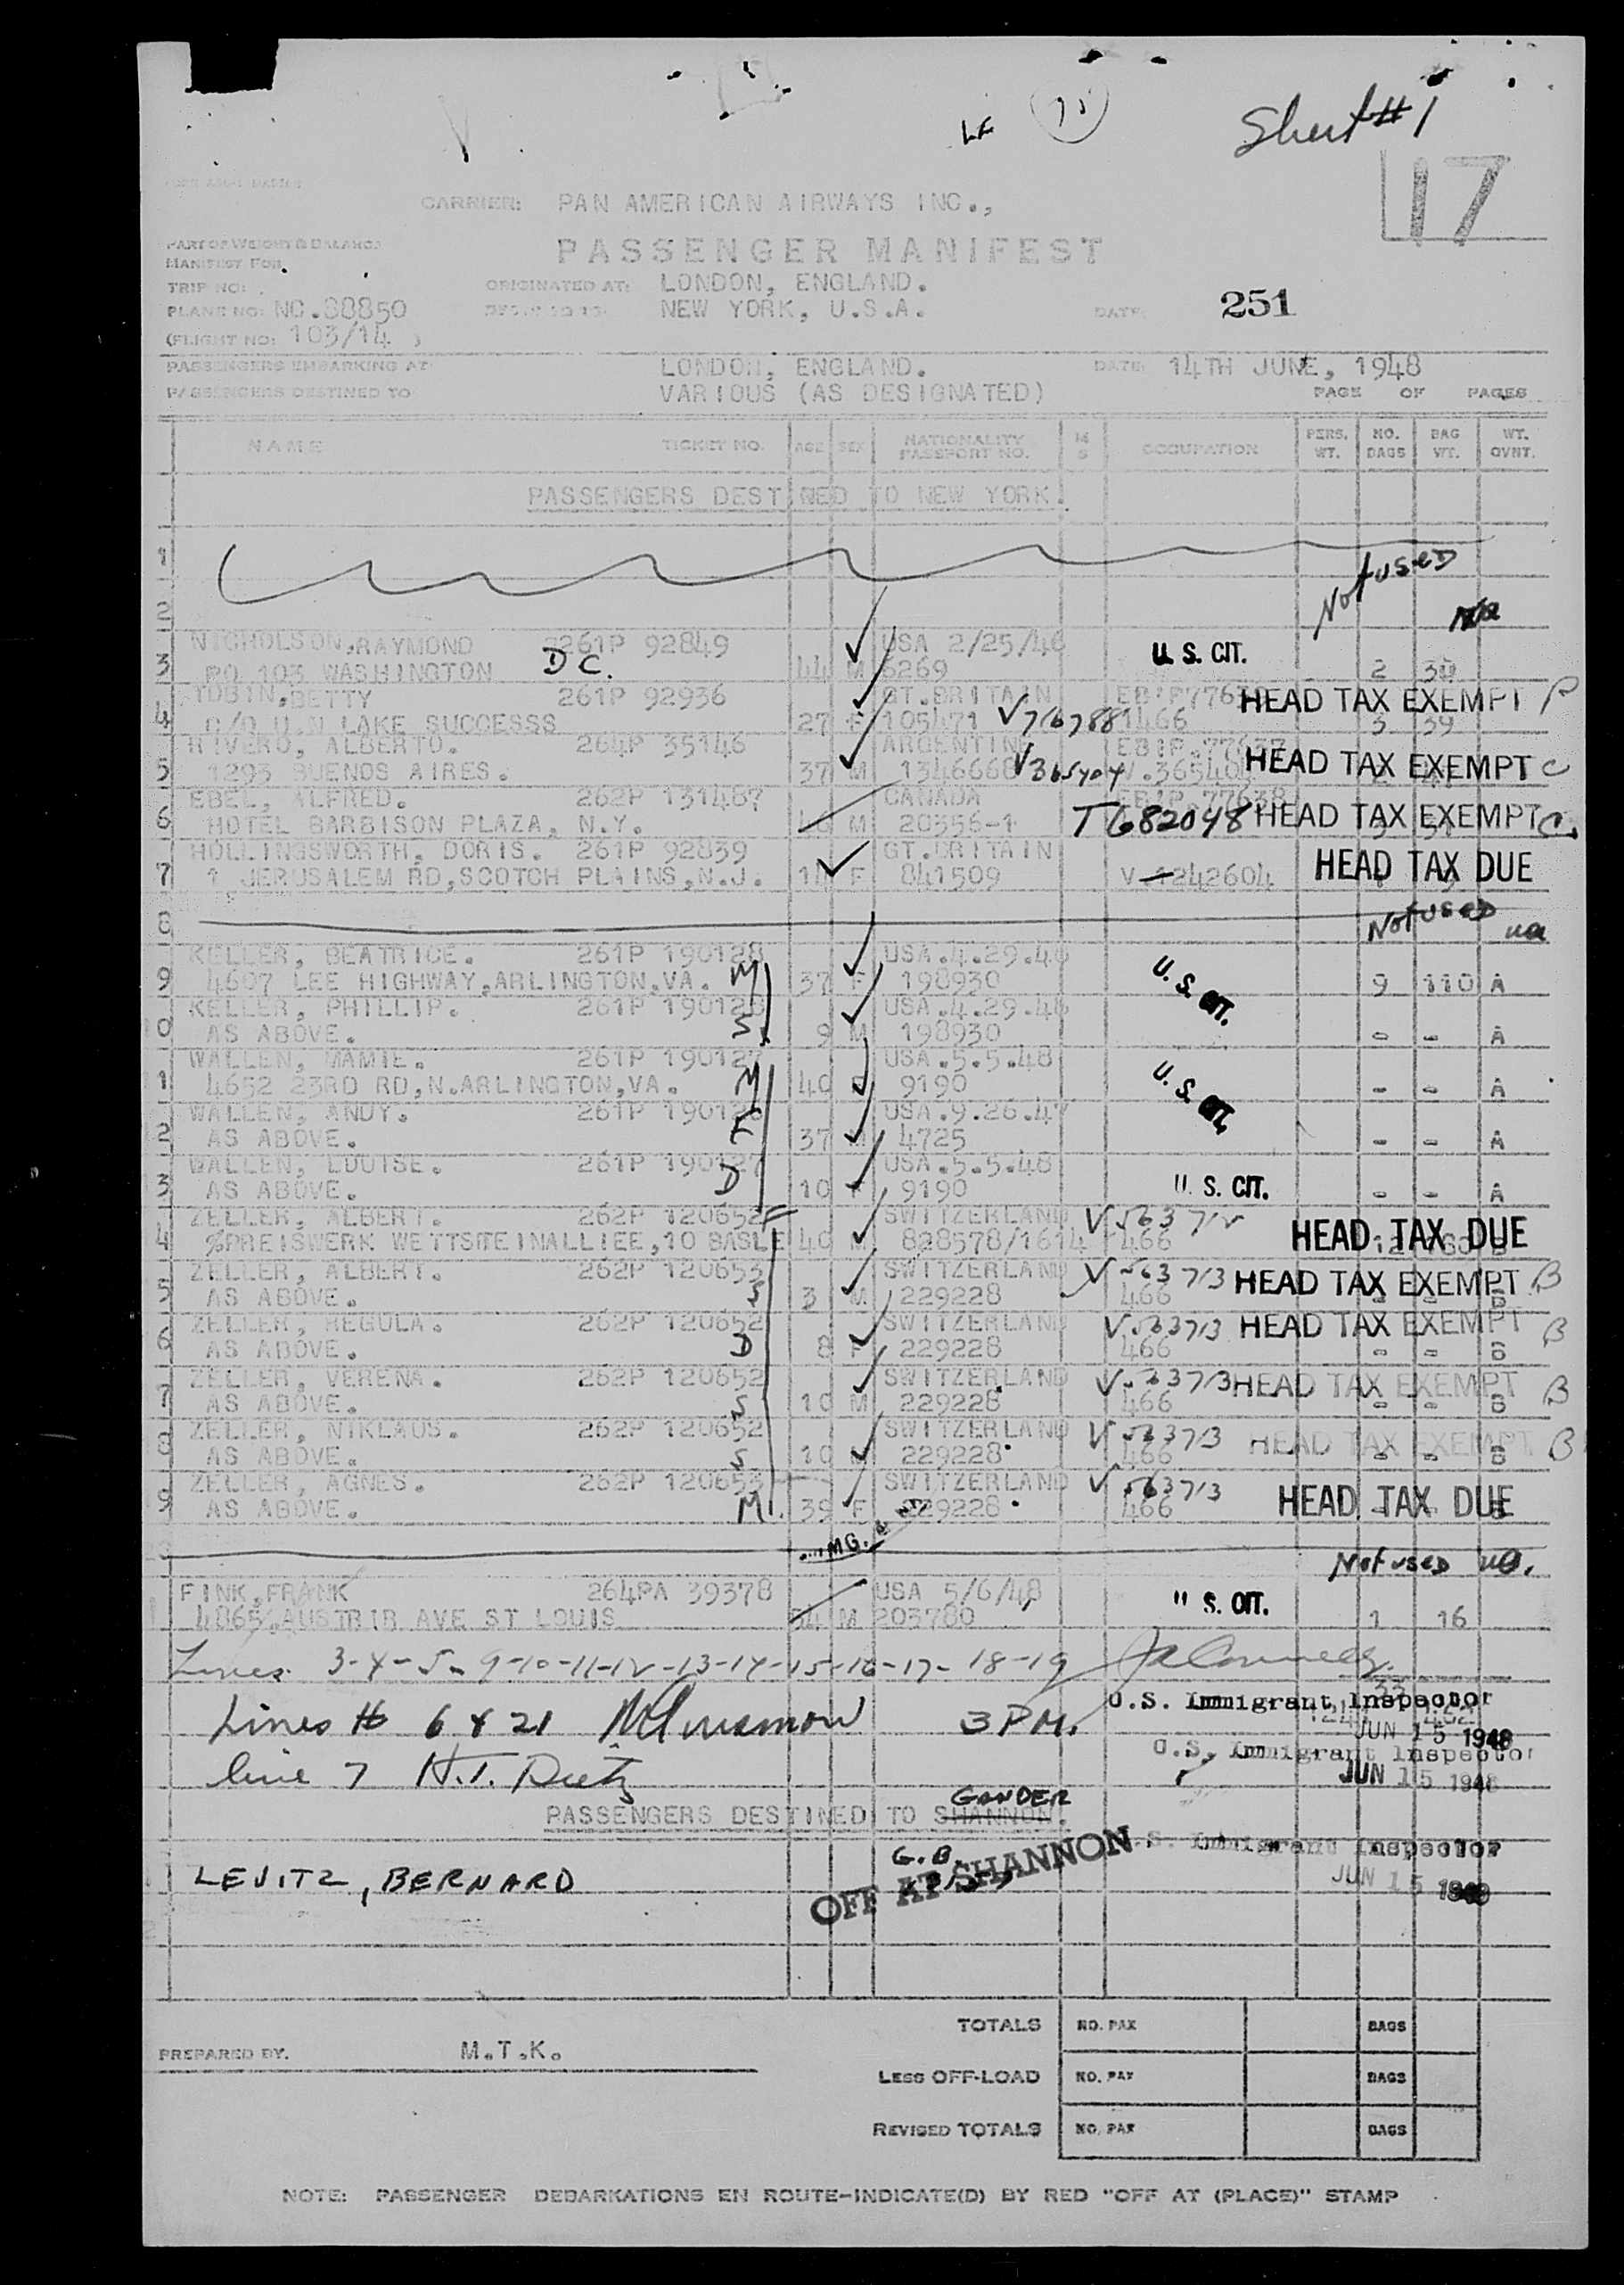 LF 15 Sheet #1
17
CARRIER: PAN AMERICAN AIRWAYS INC.,
PART OF WEIGHT & BALANCE
PASSENGER MANIFEST
MANIFEST FOR
TRIP NO: ORIGINATED AT: LONDON, ENGLAND.
PLANE NO: NC.88850 NEW YORK, U.S.A. DATE: 251
(FLIGHT NO: 103/14 )
PASSENGERS EMBARKING AT: LONDON, ENGLAND. DATE: 14TH JUNE, 1948
PASSENGERS DESTINED TO VARIOUS (AS DESIGNATED) PAGE OF PAGES
NAME TICKET NO. AGE SEX NATIONALITY PASSPORT NO. M S OCCUPATION PERS. WT. NO. BAGS BAG WT. WT. OVNT.
PASSENGERS DESTINED TO NEW YORK.
1
Not used
2
NICHOLSON,RAYMOND 261P 92849 USA 2/25/46 U. S. CIT.
3 PO 103 WASHINGTON D C. 44 M 6269 2 30
TOBIN,BETTY 261P 92936 GT.BRITAIN HEAD TAX EXEMPT P
4 C/O U.N LAKE SUCCESSS 27 F 105471 V767881466 3 39
RIVERO, ALBERTO. 264P 35146 ARGENTINE EBIP.77637
5 1293 BUENOS AIRES. 37 M 1346668 V365404 V.365404 HEAD TAX EXEMPT C
EBEL, ALFRED. 262P 131487 CANADA EBIP.77638
6 HOTEL BARBISON PLAZA, N.Y. M 20356-1 T682048 HEAD TAX EXEMPT C.
HOLLINGSWORTH, DORIS. 261P 92839 GT.BRITAIN
7 1 JERUSALEM RD,SCOTCH PLAINS,N.J. F 841509 V 1242604 HEAD TAX DUE
8 Not used
KELLER, BEATRICE. 261P 190128 USA.4.29.46 U. S. CIT.
9 4607 LEE HIGHWAY,ARLINGTON,VA. M 37 F 198930 9 110 A
KELLER, PHILLIP. 261P 190128 USA.4.29.46
0 AS ABOVE. S. 9 M 198930 - - A
WALLEN, MAMIE. 261P 190127 USA.5.5.48 U. S. CIT.
1 4652 23RD RD,N.ARLINGTON,VA. M 40 F 9190 - - A
WALLEN, ANDY. 261P 190126 USA.9.26.47
2 AS ABOVE. F 37 M 4725 - - A
WALLEN, LOUISE. 261P 190127 USA.5.5.48
3 AS ABOVE. D 10 F 9190 U. S. CIT. - - A
ZELLER, ALBERT. 262P 120652 F SWITZERLAND V 563712
4 %PREISWERK WETTSTEINALLIEE,10 BASLE 40 M 828578/1614 466 HEAD TAX DUE
ZELLER, ALBERT. 262P 120653 SWITZERLAND V 563713 HEAD TAX EXEMPT B
5 AS ABOVE. S 3 M 229228 466 - - B
ZELLER, REGULA. 262P 120652 SWITZERLAND V 563713 HEAD TAX EXEMPT B
6 AS ABOVE. D 8 F 229228 466 - - B
ZELLER, VERENA. 262P 120652 SWITZERLAND V 563713 HEAD TAX EXEMPT B
7 AS ABOVE. S 10 M 229228 466 - - B
ZELLER, NIKLAUS. 262P 120652 SWITZERLAND V 563713 HEAD TAX EXEMPT B
8 AS ABOVE. S 10 M 229228 466 - - B
ZELLER, AGNES. 262P 120653 SWITZERLAND V 563713
9 AS ABOVE. M 39 F 229228 466 HEAD TAX DUE
Not used
FINK,FRANK 264PA 39378 USA 5/6/48 U. S. CIT.
4865 AUSTRIR AVE ST LOUIS 34 M 203780 1 16
Lines 3-4-5-9-10-11-12-13-14-15-16-17-18-19
U.S. Immigrant Inspector
Lines # 6 & 21 3 PM. JUN 15 1948
U.S. Immigrant Inspector
line 7 H.T. Dietz JUN 15 1948
GANDER
PASSENGERS DESTINED TO SHANNON.
U.S. Immigrant Inspector
G.B.
LEVITZ, BERNARD OFF AT SHANNON JUN 15 1948
TOTALS NO. PAX BAGS
PREPARED BY. M.T.K.
LESS OFF-LOAD NO. PAX BAGS
REVISED TOTALS NO. PAX BAGS
NOTE: PASSENGER DEBARKATIONS EN ROUTE-INDICATE(D) BY RED "OFF AT (PLACE)" STAMP